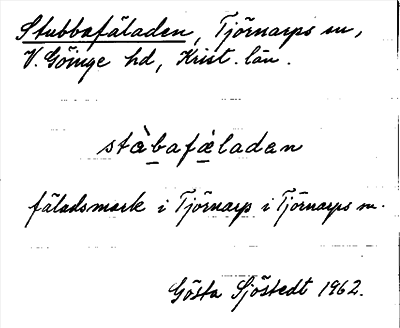 Stubbafäladen, Tjörnarps sn,
V. Göinge hd, Krist. län.
stàbafàladan
fäladsmark i Tjörnarp i Tjörnarps sn.
Gösta Sjöstedt 1962.